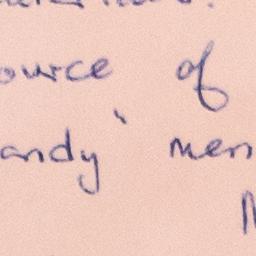 ource of
andy" men